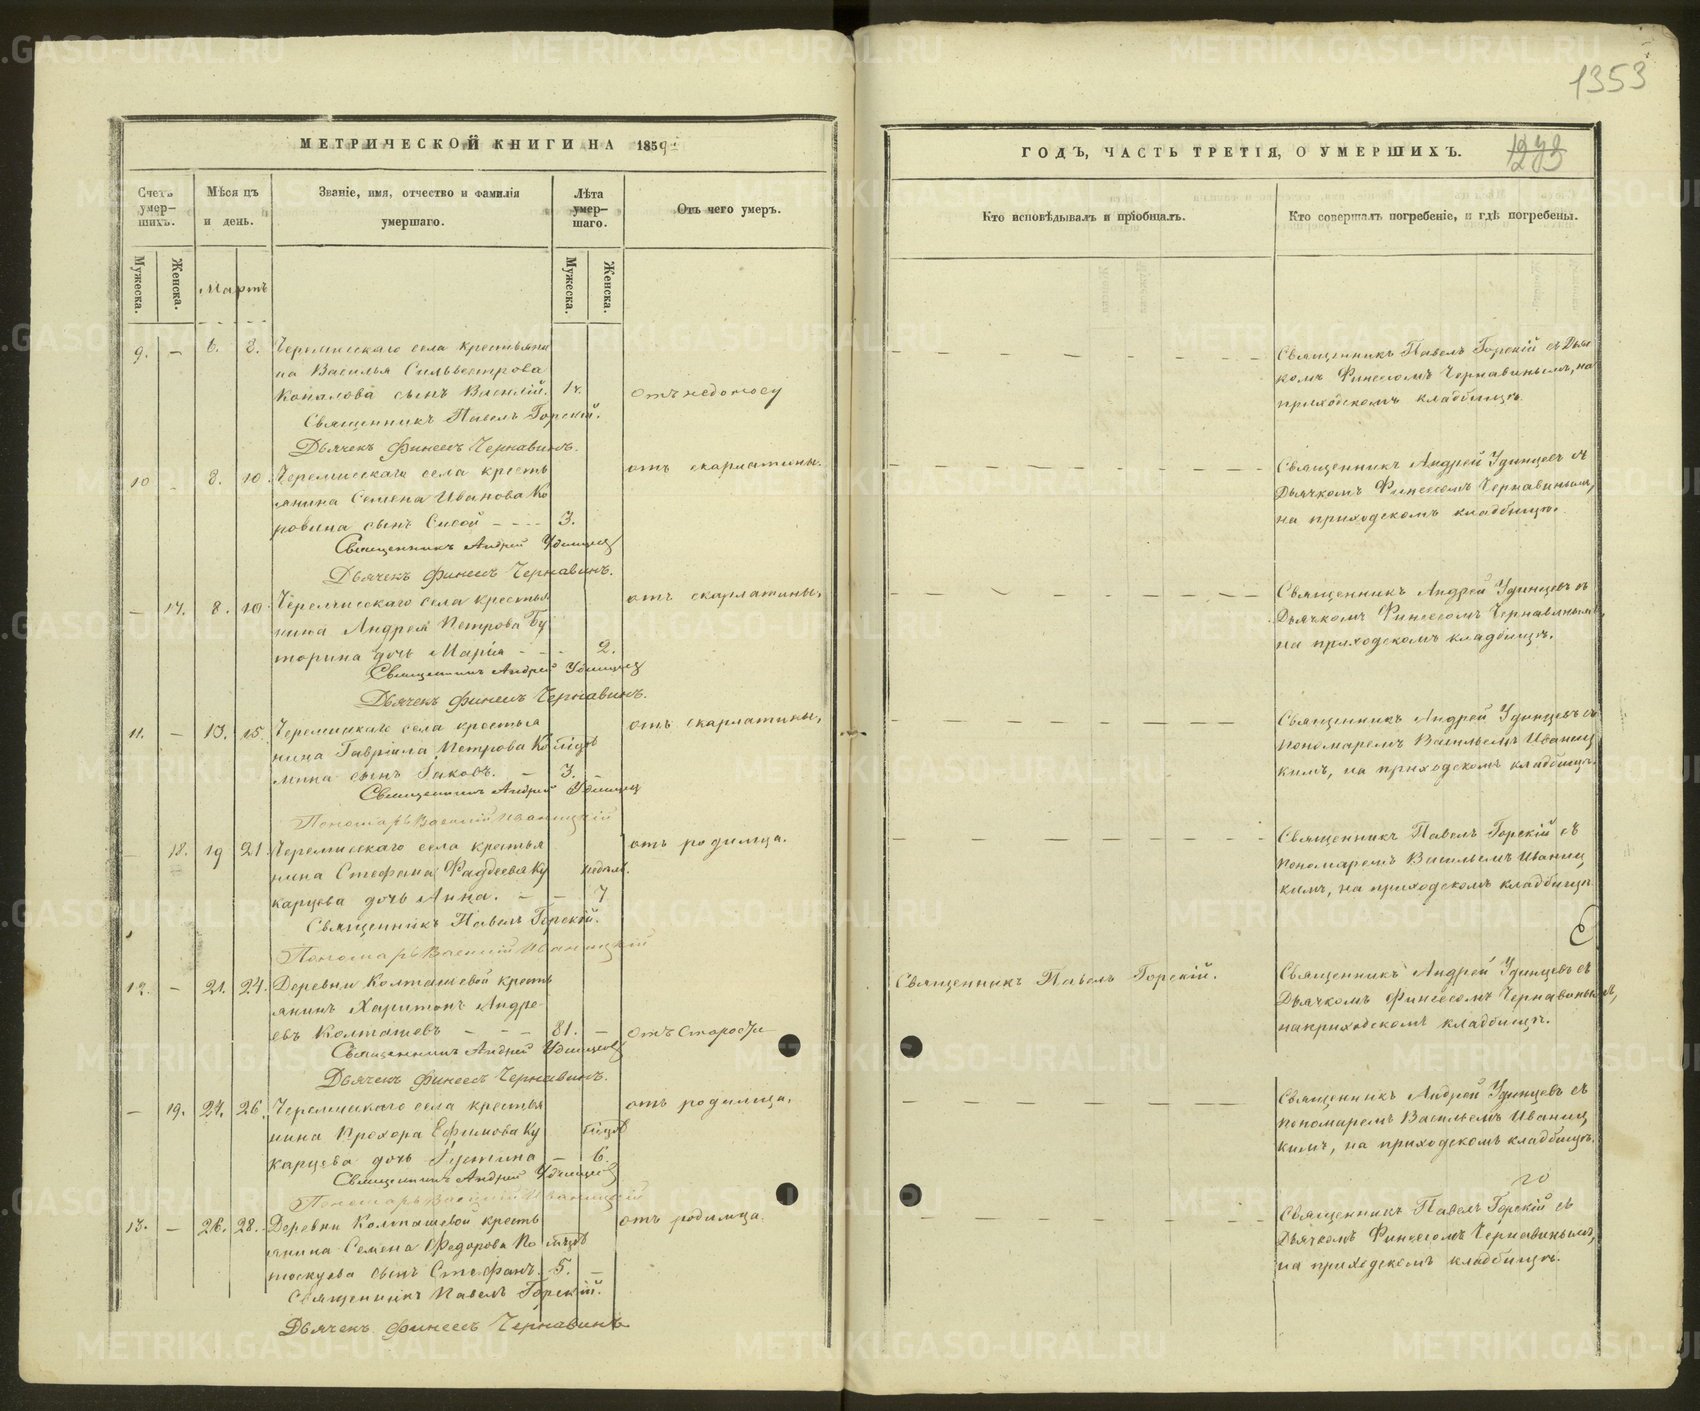 1353
МЕТРИЧЕСКОЙ КНИГИ НА 1859й
Счетъ умер-шихъ.
Мѣсяцъ и день.
Званіе, имя, отчество и фамилія умершаго.
Лѣта умер-шаго.
Отъ чего умеръ.
Мужеска.
Женска.
Мартъ
Мужеска.
Женска.
9. — 6. 8. Черемисскаго села крестьяни
на Василья Сильвестрова
Копалова сынъ Василій. отъ недоносу
Священникъ Павелъ Горскій.
Дьячекъ Финеесъ Чернавинъ.
10 - 8. 10. Черемисскаго села кресть отъ скарлатины.
янина Семена Иванова Ко
ровина сынъ Сисой - - - - 3.
Священникъ Андрей Удинцев
Дьячекъ Финеесъ Чернавинъ.
— 17. 8. 10. Черемисскаго села крестья отъ скарлатины.
нина Андрея Петрова Бу
торина дочь Марія - - - 2.
Священникъ Андрей Удинцев
Дьячекъ Финеесъ Чернавинъ.
11. — 13. 15. Черемискаго села крестья отъ скарлатины,
нина Гавріила Петрова Ко
мина сынъ Іаковъ. — 3. —
Священникъ Андрей Удинцев
Пономарь Василій Иваницкій
— 18. 19 21 Черемисскаго села крестья отъ родимца.
нина Стефана Фаддеева Ку недѣл.
карцева дочь Анна. — — 7
Священникъ Павелъ Горскій.
Пономарь Василій Иваницкій
12. — 21. 24. Деревни Колташевой кресть
янинъ Харитонъ Андре
евъ Колташевъ — — — 81. — отъ старости
Священникъ Андрей Удинцев
Дьячекъ Финеесъ Чернавинъ.
— 19. 24. 26. Черемискаго села крестья отъ родимца.
нина Прохора Ефимова Ку
карцева дочь Іустина — 6.
Священникъ Андрей Удинцев
Пономарь Василій Иваницкій
13. — 26. 28. Деревни Колташевой кресть отъ родимца.
янина Семена Федорова По
тоскуева сынъ Стефанъ. 5. —
Священникъ Павелъ Горскій.
Дьячекъ Финеесъ Чернавинъ
ГОДЪ, ЧАСТЬ ТРЕТІЯ, О УМЕРШИХЪ.
Кто исповѣдывалъ и пріобщалъ.
Кто совершалъ погребеніе, и гдѣ погребены.
Священникъ Павелъ Горскій съ Дьяч
комъ Финеесомъ Чернавинымъ, на
приходскомъ кладбищѣ.
Священникъ Андрей Удинцевъ съ
Дьячкомъ Финеесомъ Чернавинымъ,
на приходскомъ кладбищѣ.
Священникъ Андрей Удинцевъ съ
Дьячкомъ Финеесомъ Чернавинымъ,
на приходскомъ кладбищѣ.
Священникъ Андрей Удинцевъ съ
пономаремъ Васильемъ Иваниц
кимъ, на приходскомъ кладбищѣ.
Священникъ Павелъ Горскій съ
пономаремъ Васильемъ Иваниц
кимъ, на приходскомъ кладбищѣ
Священникъ Павелъ Горскій.
Священникъ Андрей Удинцевъ съ
Дьячкомъ Финеесомъ Чернавинымъ,
на приходскомъ кладбищѣ.
Священникъ Андрей Удинцевъ съ
пономаремъ Васильемъ Иваниц
кимъ, на приходскомъ кладбищѣ.
Священникъ Павелъ Горскій съ
Дьячкомъ Финеесомъ Чернавинымъ,
на приходскомъ кладбищѣ.
METRIKI.GASO-URAL.RU